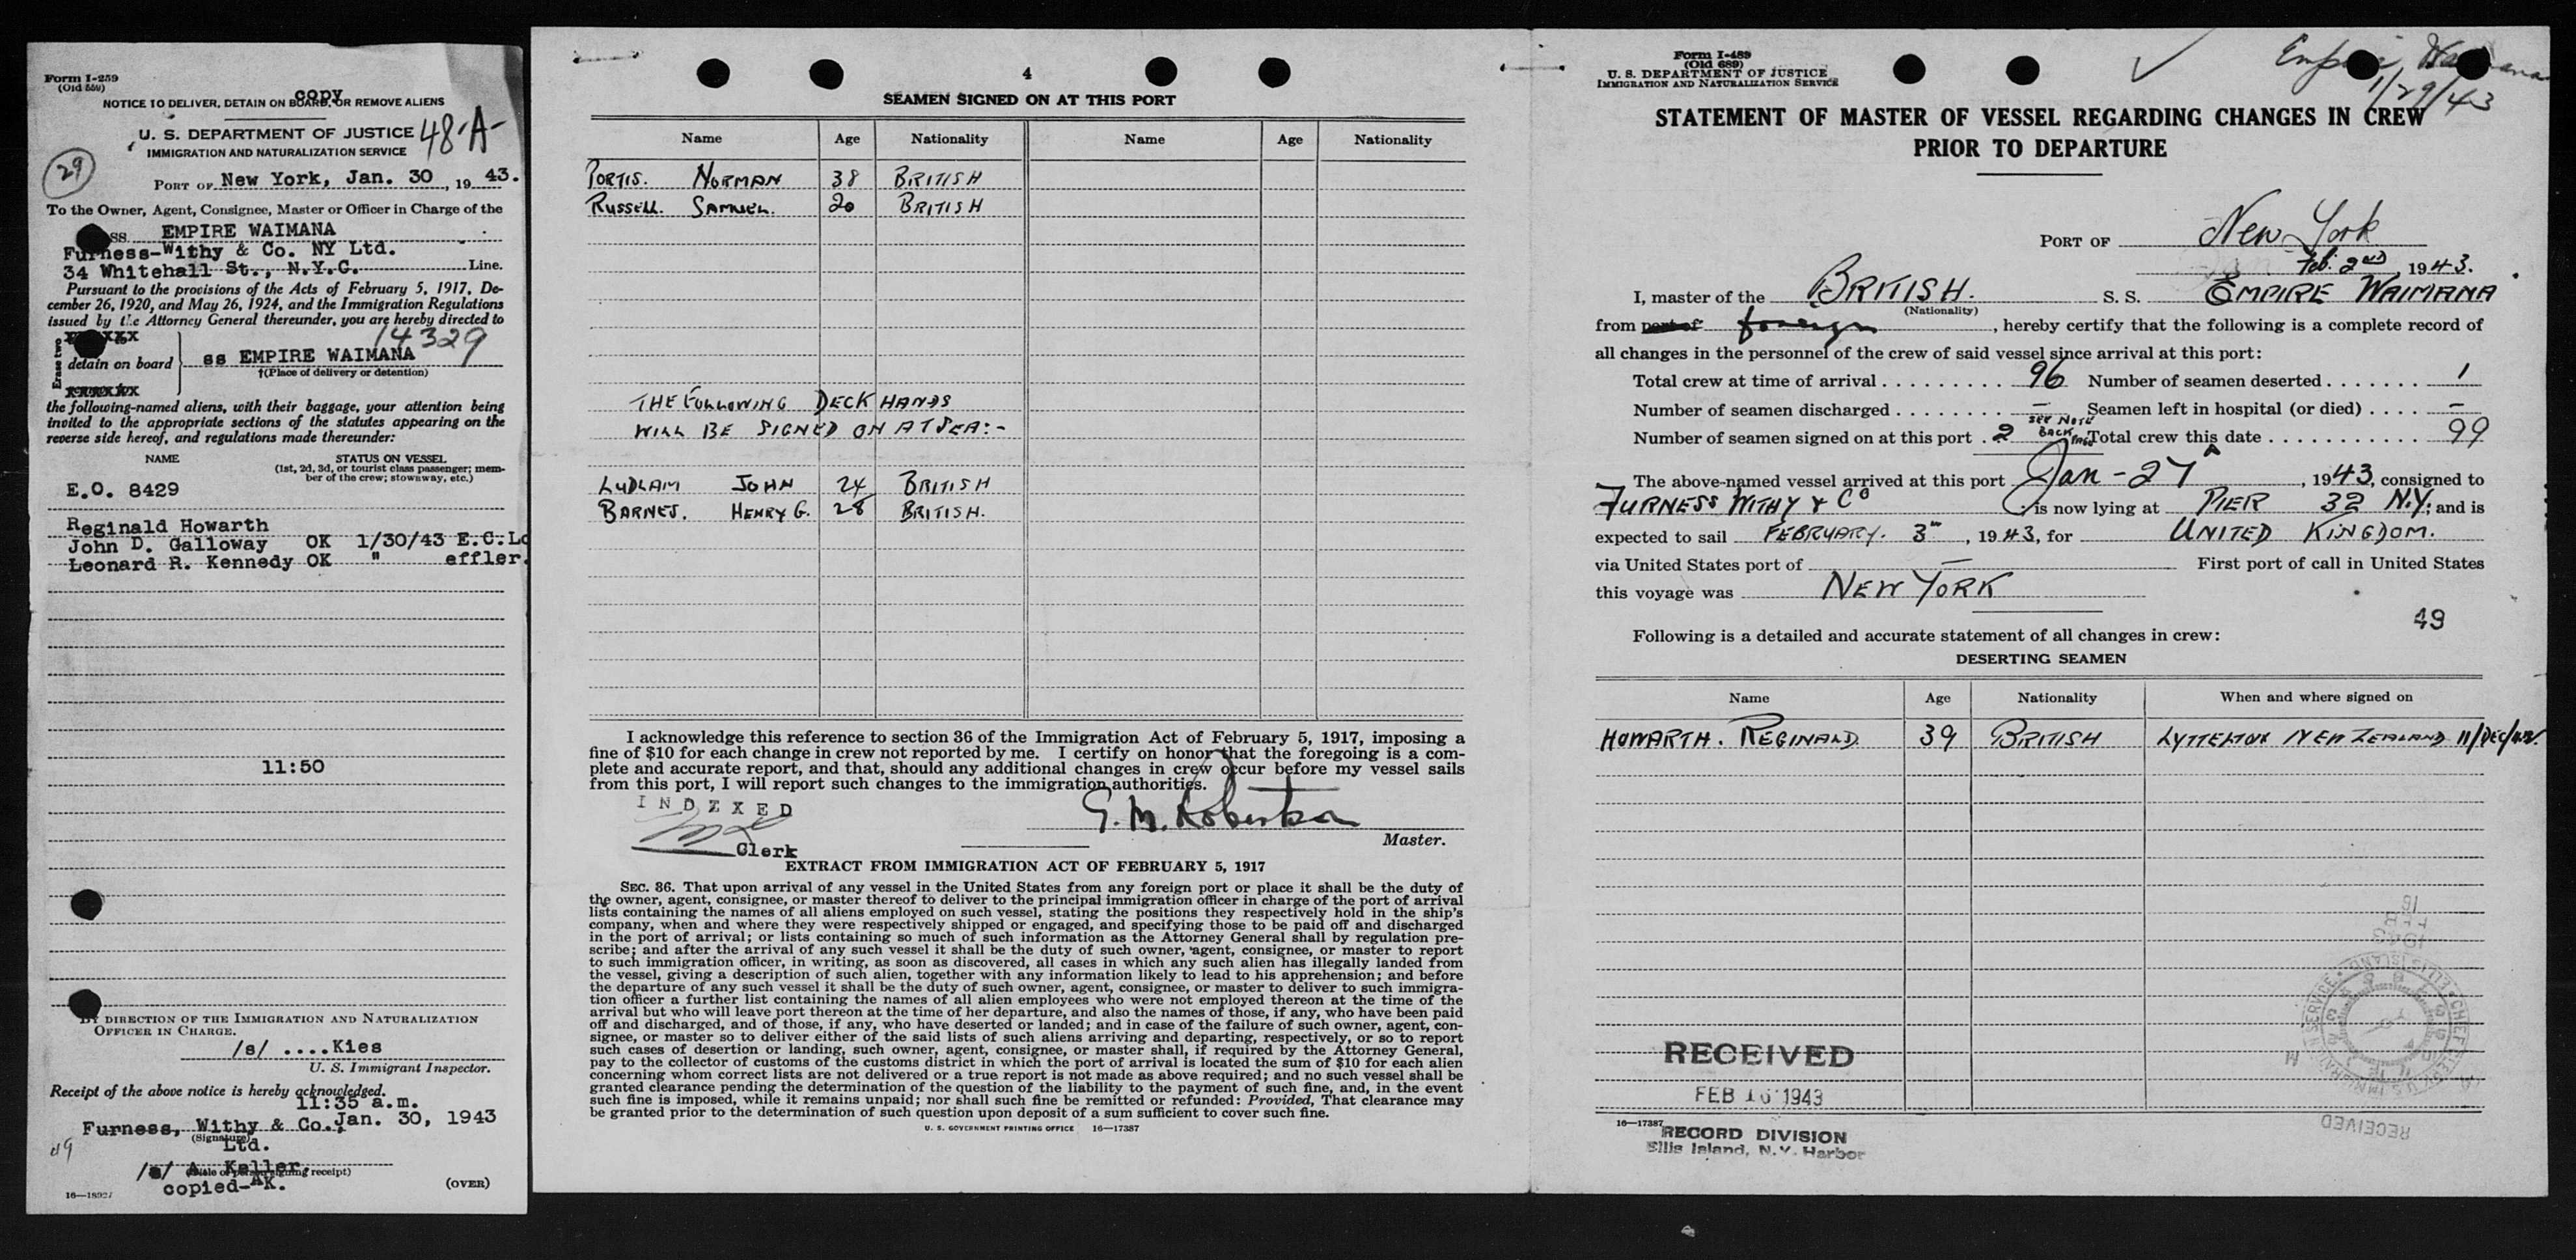 Form I-259
(Old 559)
copy
NOTICE TO DELIVER, DETAIN ON BOARD, OR REMOVE ALIENS
U. S. DEPARTMENT OF JUSTICE
48-A-
IMMIGRATION AND NATURALIZATION SERVICE
29
PORT OF New York, Jan. 30, 1943.
To the Owner, Agent, Consignee, Master or Officer in Charge of the
SS EMPIRE WAIMANA
Furness-Withy & Co. NY Ltd.
34 Whitehall St., N.Y.C. Line.
Pursuant to the provisions of the Acts of February 5, 1917, De-
cember 26, 1920, and May 26, 1924, and the Immigration Regulations
issued by the Attorney General thereunder, you are hereby directed to
14329
Erase two
detain on board ss EMPIRE WAIMANA
†(Place of delivery or detention)
the following-named aliens, with their baggage, your attention being
invited to the appropriate sections of the statutes appearing on the
reverse side hereof, and regulations made thereunder:
NAME STATUS ON VESSEL
(1st, 2d, 3d, or tourist class passenger; mem-
ber of the crew; stowaway, etc.)
E.O. 8429
Reginald Howarth
John D. Galloway OK 1/30/43 E.C.Lo
Leonard R. Kennedy OK " effler.
11:50
BY DIRECTION OF THE IMMIGRATION AND NATURALIZATION
OFFICER IN CHARGE.
/s/ ....Kies
U. S. Immigrant Inspector.
Receipt of the above notice is hereby acknowledged.
11:35 a.m.
Furness, Withy & Co., Jan. 30, 1943
(Signature)
Ltd.
49
/s/ A. Keller
(Title of person signing receipt)
copied-AK.
(OVER)
4
SEAMEN SIGNED ON AT THIS PORT
Name Age Nationality Name Age Nationality
PORTIS. NORMAN 38 BRITISH
RUSSELL. SAMUEL. 20 BRITISH
THE FOLLOWING DECK HANDS
WILL BE SIGNED ON AT SEA:-
LUDLAM JOHN 24 BRITISH
BARNES. HENRY G. 28 BRITISH.
I acknowledge this reference to section 36 of the Immigration Act of February 5, 1917, imposing a
fine of $10 for each change in crew not reported by me. I certify on honor that the foregoing is a com-
plete and accurate report, and that, should any additional changes in crew occur before my vessel sails
from this port, I will report such changes to the immigration authorities.
INDEXED
G. M. Robertson
Clerk
Master.
EXTRACT FROM IMMIGRATION ACT OF FEBRUARY 5, 1917
SEC. 36. That upon arrival of any vessel in the United States from any foreign port or place it shall be the duty of
the owner, agent, consignee, or master thereof to deliver to the principal immigration officer in charge of the port of arrival
lists containing the names of all aliens employed on such vessel, stating the positions they respectively hold in the ship's
company, when and where they were respectively shipped or engaged, and specifying those to be paid off and discharged
in the port of arrival; or lists containing so much of such information as the Attorney General shall by regulation pre-
scribe; and after the arrival of any such vessel it shall be the duty of such owner, agent, consignee, or master to report
to such immigration officer, in writing, as soon as discovered, all cases in which any such alien has illegally landed from
the vessel, giving a description of such alien, together with any information likely to lead to his apprehension; and before
the departure of any such vessel it shall be the duty of such owner, agent, consignee, or master to deliver to such immigra-
tion officer a further list containing the names of all alien employees who were not employed thereon at the time of the
arrival but who will leave port thereon at the time of her departure, and also the names of those, if any, who have been paid
off and discharged, and of those, if any, who have deserted or landed; and in case of the failure of such owner, agent, con-
signee, or master so to deliver either of the said lists of such aliens arriving and departing, respectively, or so to report
such cases of desertion or landing, such owner, agent, consignee, or master shall, if required by the Attorney General,
pay to the collector of customs of the customs district in which the port of arrival is located the sum of $10 for each alien
concerning whom correct lists are not delivered or a true report is not made as above required; and no such vessel shall be
granted clearance pending the determination of the question of the liability to the payment of such fine, and, in the event
such fine is imposed, while it remains unpaid; nor shall such fine be remitted or refunded: Provided, That clearance may
be granted prior to the determination of such question upon deposit of a sum sufficient to cover such fine.
U. S. GOVERNMENT PRINTING OFFICE 16—17387
Form I-489
(Old 689)
U. S. DEPARTMENT OF JUSTICE
IMMIGRATION AND NATURALIZATION SERVICE
Empire Waimana
1/29/43
STATEMENT OF MASTER OF VESSEL REGARDING CHANGES IN CREW
PRIOR TO DEPARTURE
PORT OF New York
Feb. 2nd, 1943.
I, master of the BRITISH. S. S. EMPIRE WAIMANA
(Nationality)
from port of foreign, hereby certify that the following is a complete record of
all changes in the personnel of the crew of said vessel since arrival at this port:
Total crew at time of arrival 96 Number of seamen deserted 1
Number of seamen discharged — Seamen left in hospital (or died) —
Number of seamen signed on at this port 2 SEE NOTE BACK PAGE Total crew this date 99
The above-named vessel arrived at this port Jan-27, 1943, consigned to
FURNESS WITHY & Co is now lying at PIER 32 N.Y.; and is
expected to sail FEBRUARY. 3rd, 1943, for UNITED KINGDOM.
via United States port of — First port of call in United States
this voyage was NEW YORK
49
Following is a detailed and accurate statement of all changes in crew:
DESERTING SEAMEN
Name Age Nationality When and where signed on
HOWARTH. REGINALD 39 BRITISH LYTTELTON NEW ZEALAND 11/DEC/42.
16
FEB
1943
RECEIVED
FEB 16 1943
16—17387
RECORD DIVISION
Ellis Island, N.Y. Harbor
RECEIVED